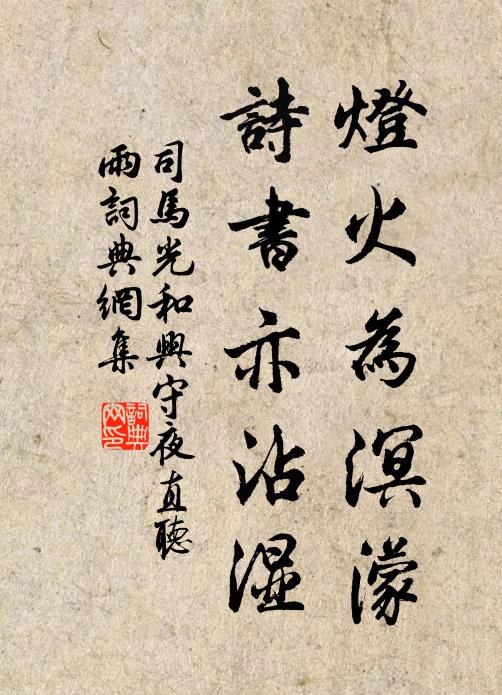 燈火為溟濛
詩書亦沾濕
司馬光和興守夜直聽
雨詞典網集
詞典网印